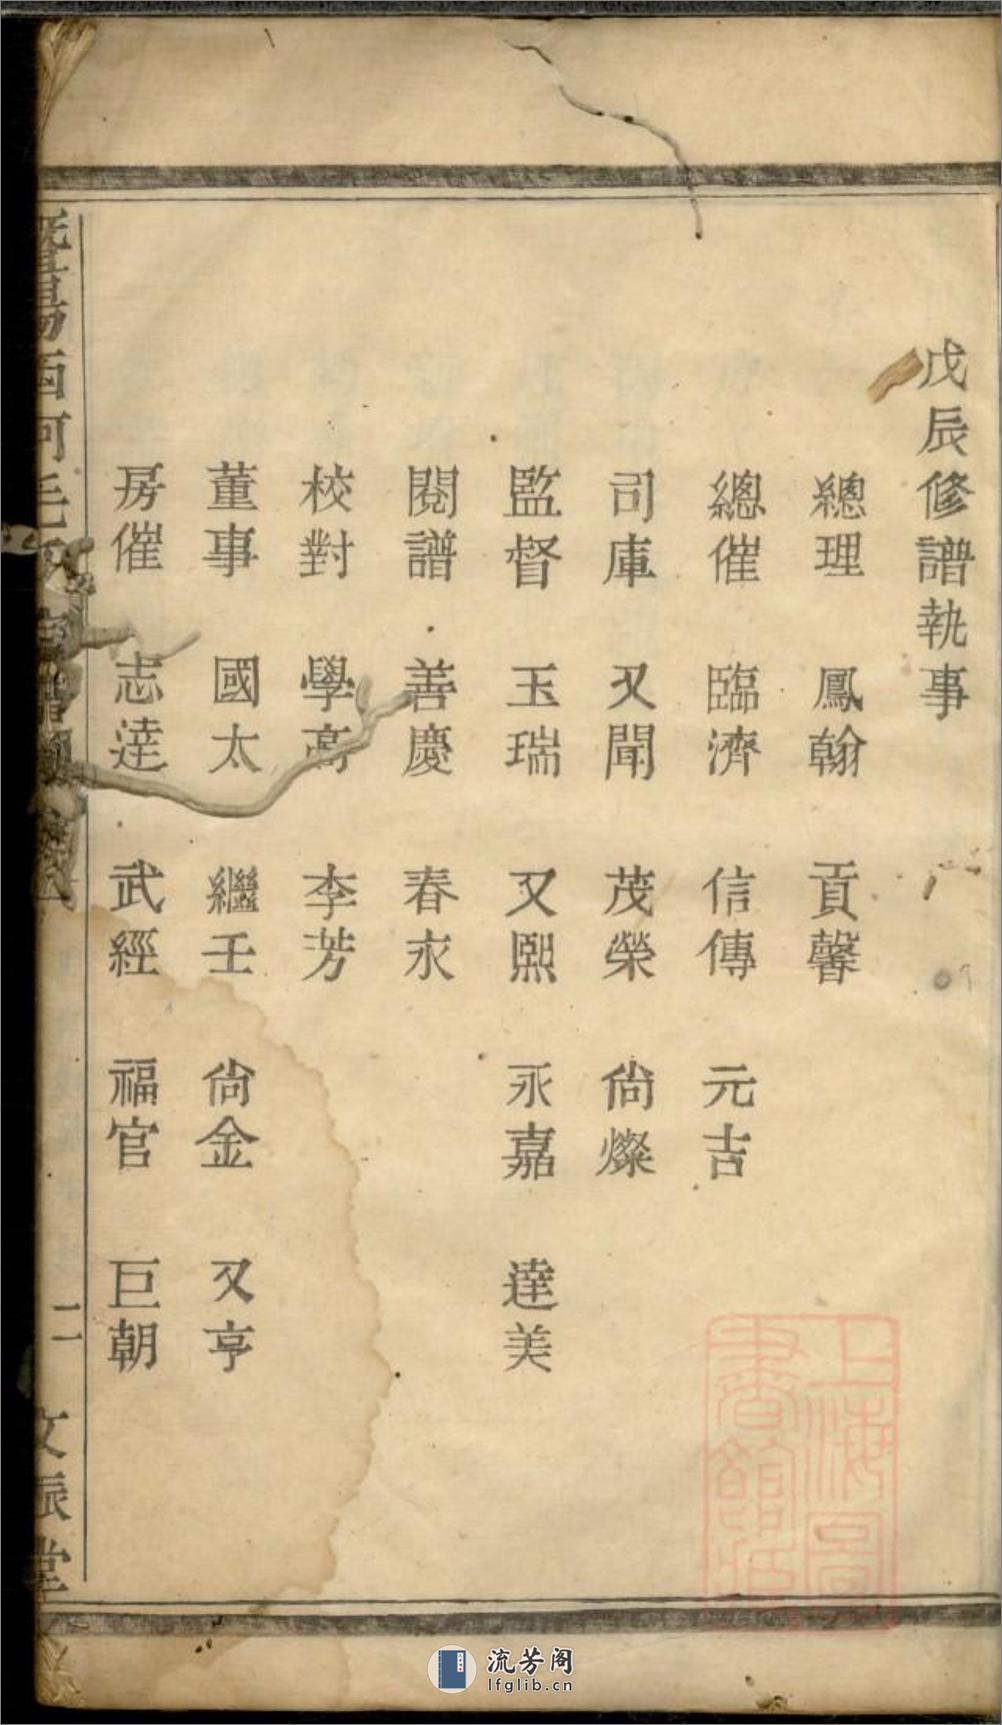 戊辰修譜執事
總理 鳳翰 貢馨
總催 臨濟 信傳 元吉
司庫 又聞 茂榮 尙燦
監督 玉瑞 又熙 永嘉 達美
閱譜 善慶 春永
校對 學高 李芳
董事 國太 繼壬 尙金 又亨
房催 志達 武經 福官 巨朝
暨陽西河毛氏宗譜
二
文振堂
上海圖
書館藏
流芳阁
lfglib.cn